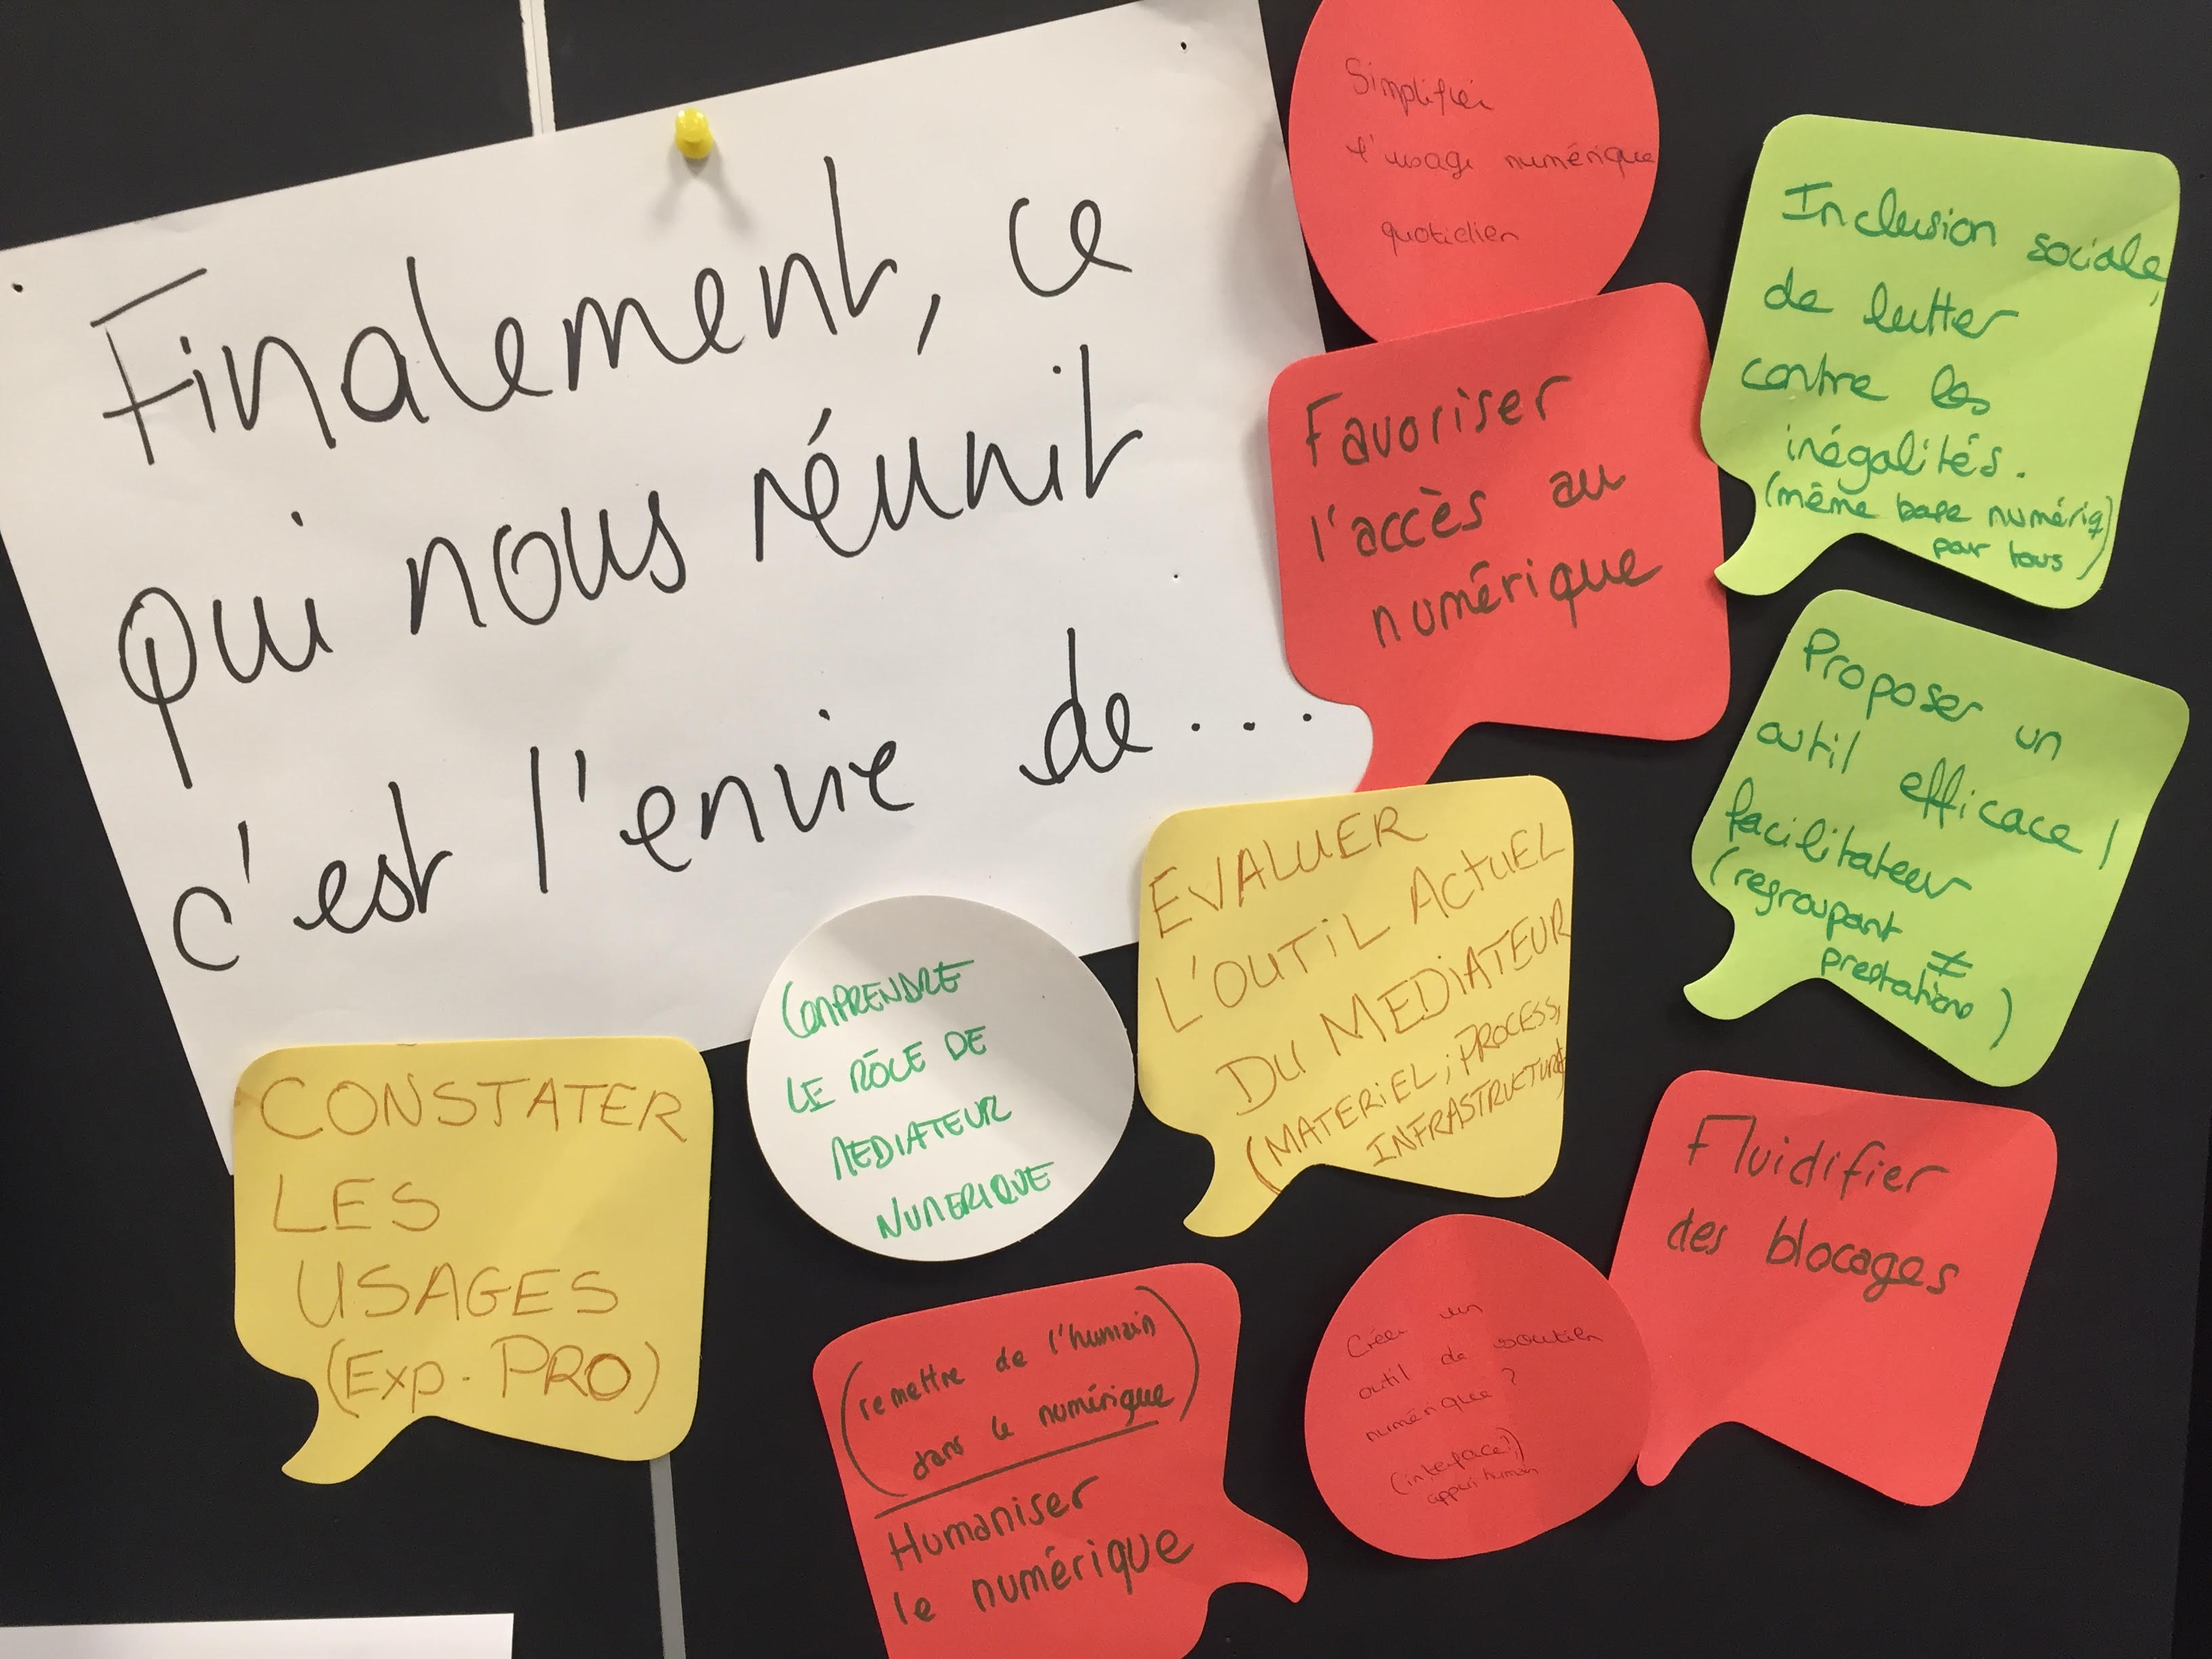 Finalement, ce
qui nous réunit
c'est l'envie de...
Simplifier
l'usage numérique
quotidien
Favoriser
l'accès au
numérique
Inclusion sociale,
de lutter
contre les
inégalités.
(même base numériq
par tous)
Proposer un
outil efficace /
facilitateur
(regroupant ≠
prestations)
EVALUER
L'OUTIL ACTUEL
DU MEDIATEUR
(MATERIEL ; PROCESS,
INFRASTRUCTURE)
COMPRENDRE
LE RÔLE DE
MEDIATEUR
NUMERIQUE
CONSTATER
LES
USAGES
(Exp. PRO)
Fluidifier
des blocages
Créer un
outil de soutien
numérique ?
(interface?)
humain
(remettre de l'humain
dans le numérique)
Humaniser
le numérique